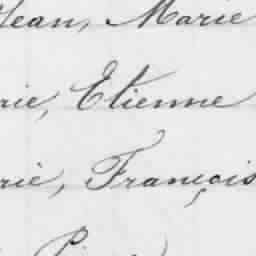 Jean, Marie
rie, Etienne
rie, François